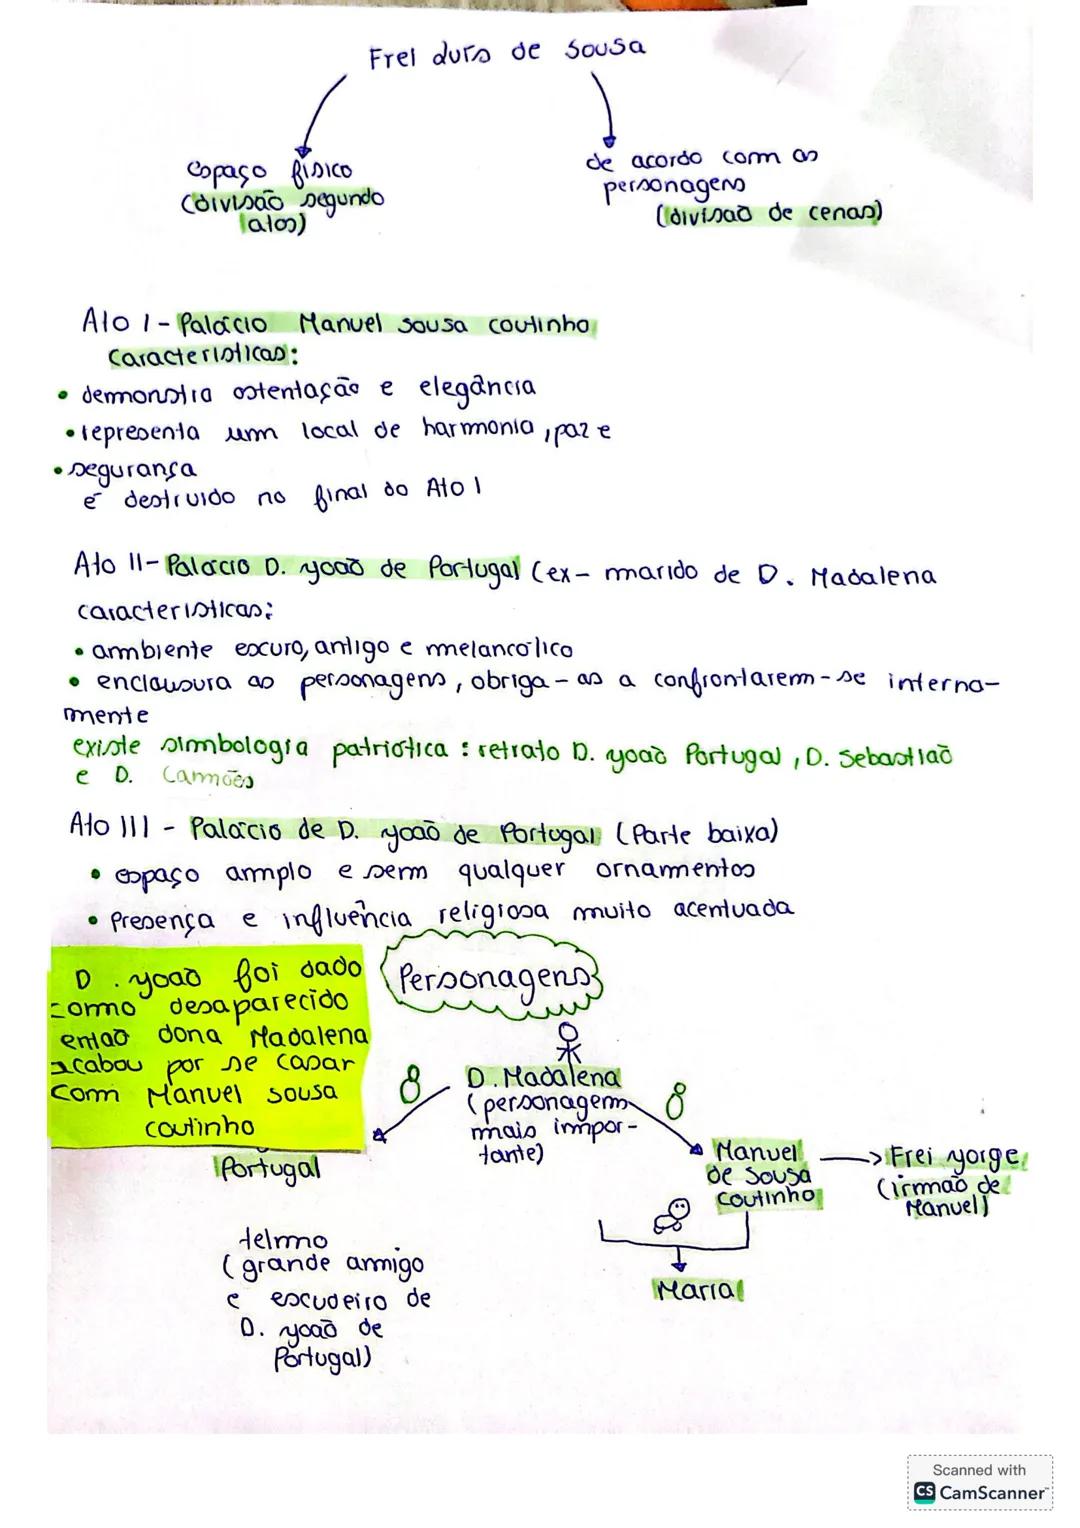 Frei Luís de Sousa
espaço físico
(divisão segundo
atos)
de acordo com as
personagens
(divisão de cenas)
Ato I - Palácio Manuel Sousa Coutinho
Características:
• demonstra ostentação e elegância
• representa um local de harmonia, paz e
• segurança
é destruido no final do Ato I
Ato II - Palácio D. João de Portugal (ex-marido de D. Madalena
características:
• ambiente escuro, antigo e melancólico
• enclausura as personagens, obriga-as a confrontarem-se interna-
mente
existe simbologia patriótica: retrato D. João Portugal, D. Sebastião
e D. Camões
Ato III - Palácio de D. João de Portugal (Parte baixa)
• espaço amplo e sem qualquer ornamentos
• Presença e influência religiosa muito acentuada
D. João foi dado
como desaparecido
então dona Madalena
acabou por se casar
com Manuel Sousa
Coutinho
Personagens
D. Madalena
(personagem
mais impor-
tante)
Portugal
Manuel
de Sousa
Coutinho
Frei Jorge
(irmão de
Manuel)
Maria
telmo
(grande amigo
e escudeiro de
D. João de
Portugal)
Scanned with
CS CamScanner